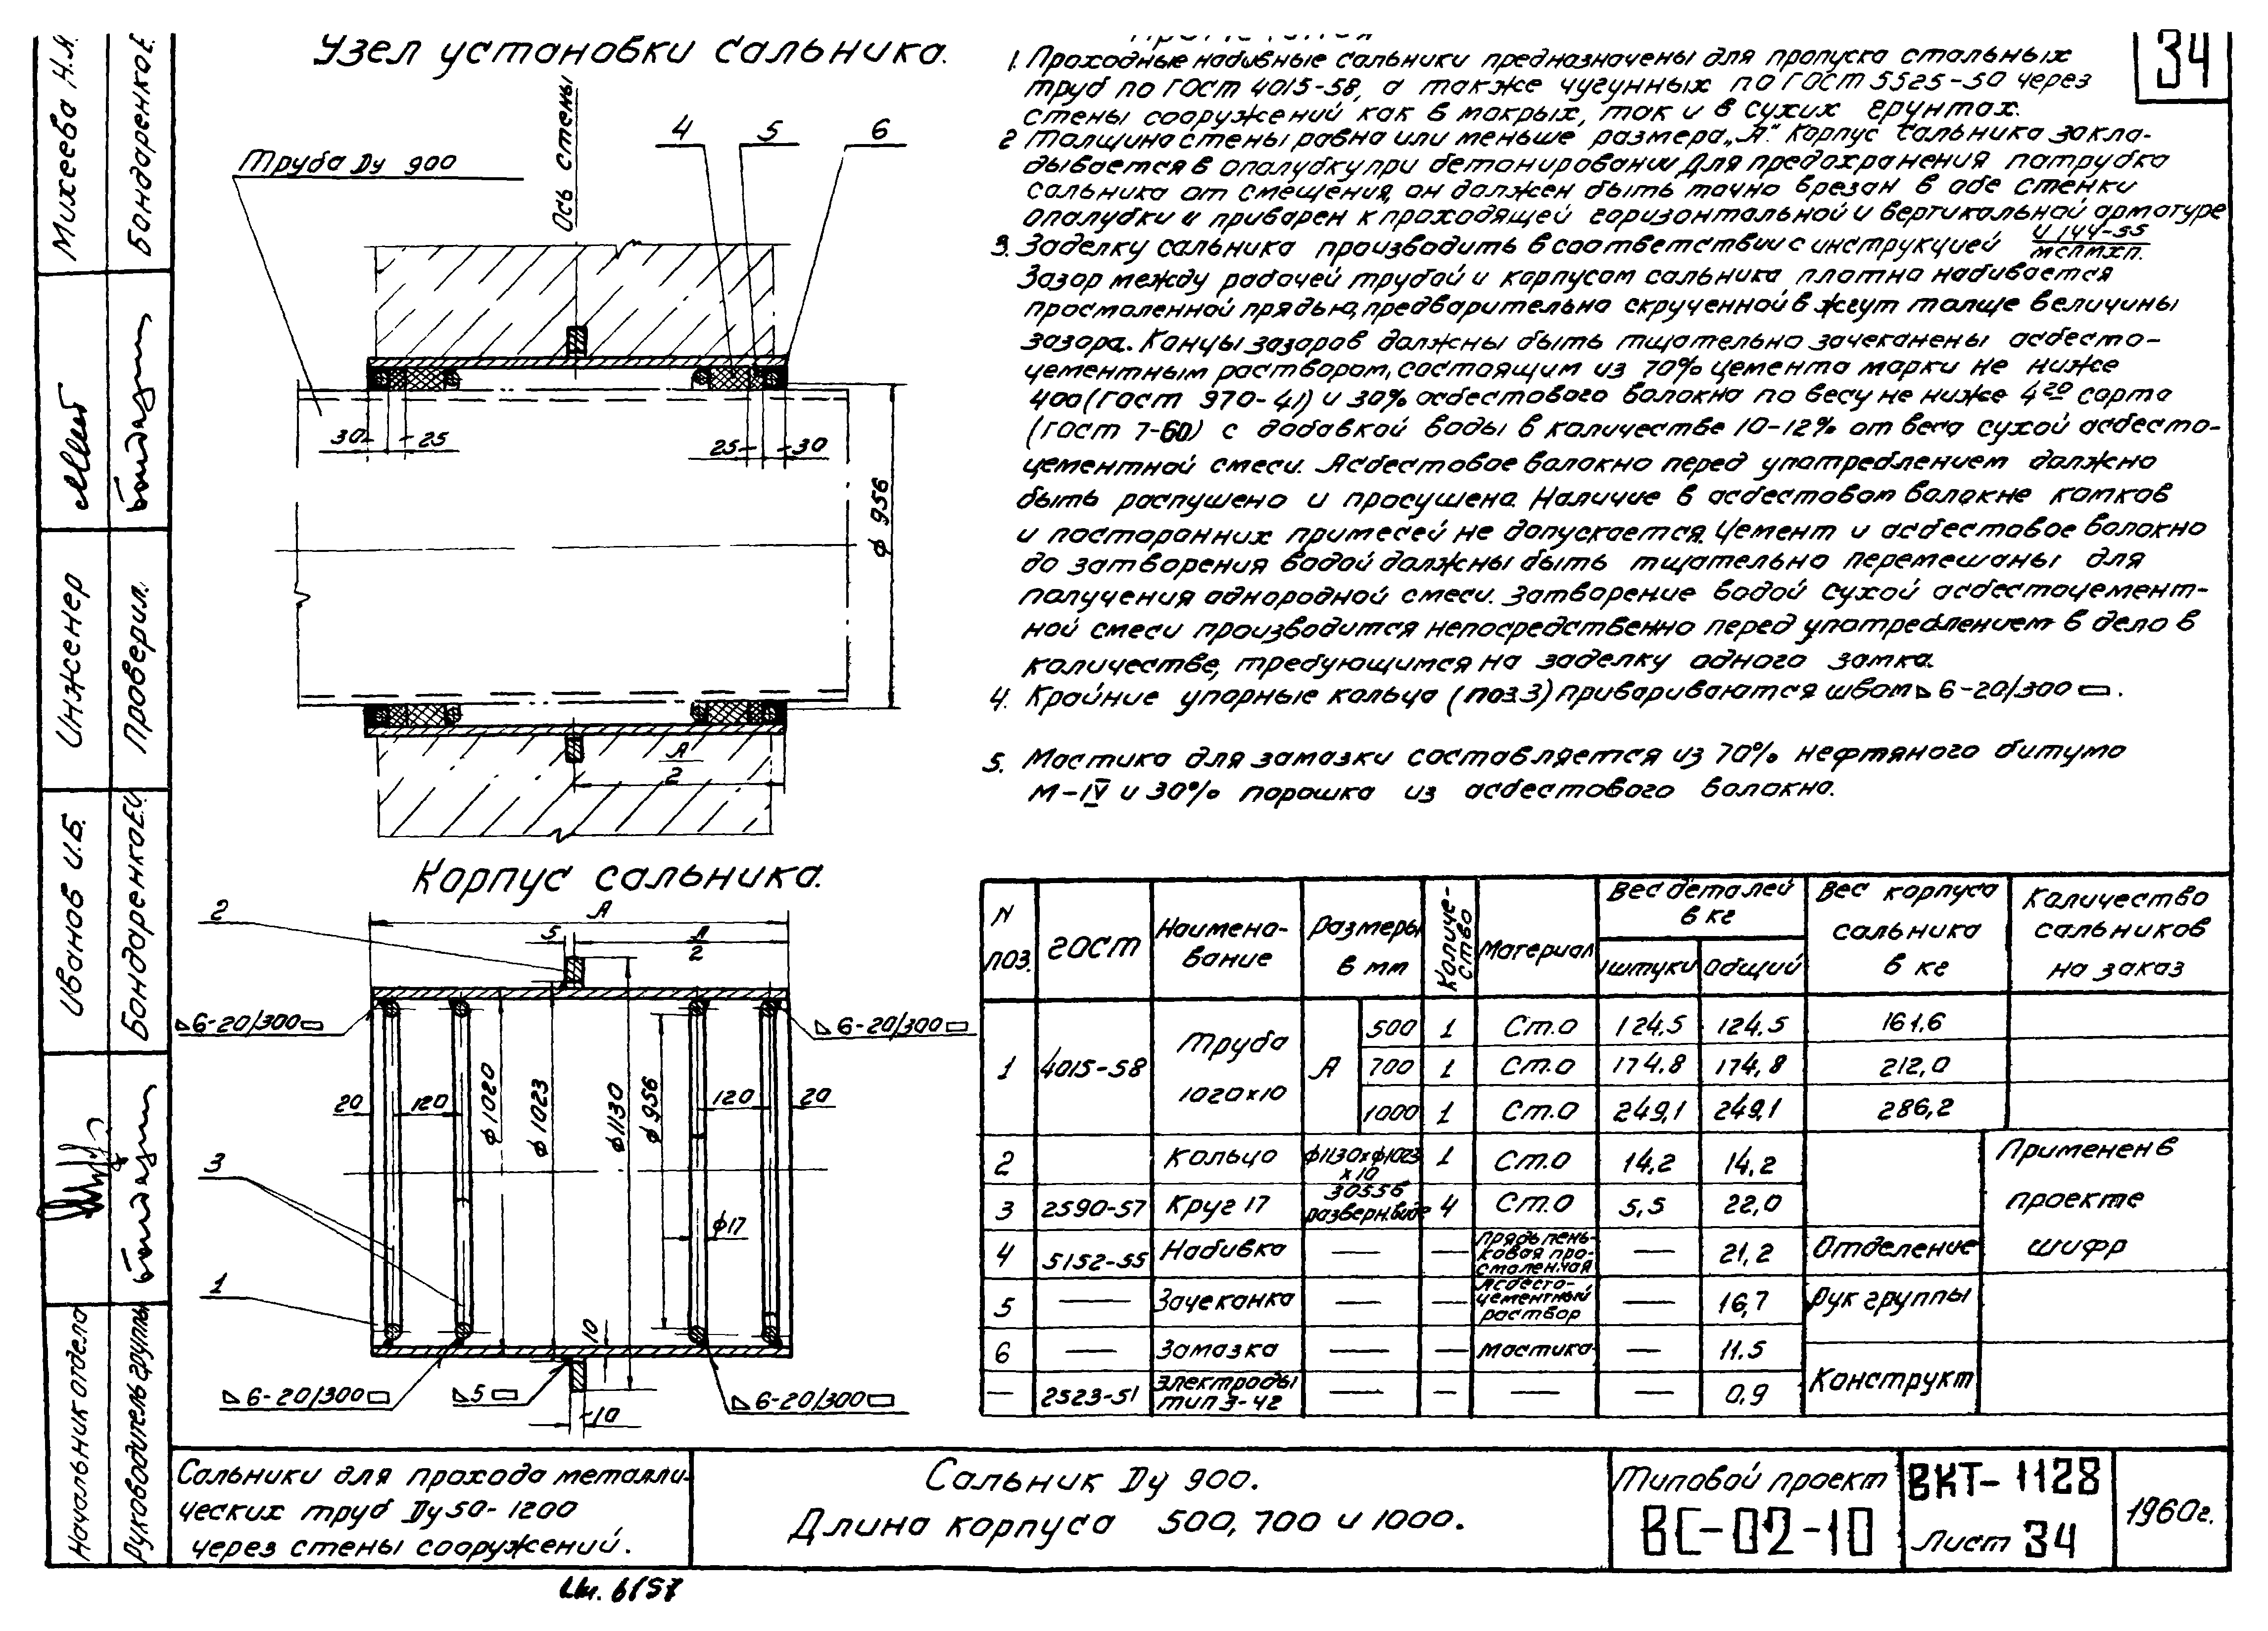 34
Узел установки сальника.
Труба Dу 900
Ось стены
4
5
6
30
25
25
30
ф 956
А
2
Корпус сальника.
2
А
5
А
2
6-20/300
6-20/300
20
120
ф 1020
ф 1023
ф 1130
ф 956
120
20
3
ф17
1
10
6-20/300
5
10
6-20/300
1. Проходные набивные сальники предназначены для пропуска стальных
труб по ГОСТ 4015-58, а также чугунных по ГОСТ 5525-50 через
стены сооружений как в мокрых, так и в сухих грунтах.
2 Толщина стены равна или меньше размера „А". Корпус сальника закла-
дывается в опалубку при бетонировании Для предохранения патрубка
сальника от смещения, он должен быть точно врезан в обе стенки
опалубки и приварен к проходящей горизонтальной и вертикальной арматуре
3. Заделку сальника производить в соответствии с инструкцией И 144-55
МСПМХП.
Зазор между рабочей трубой и корпусом сальника плотно набивается
просмоленной прядью, предварительно скрученной в жгут толще величины
зазора. Концы зазоров должны быть тщательно зачеканены асбесто-
цементным раствором, состоящим из 70% цемента марки не ниже
400 (ГОСТ 970-41) и 30% асбестового волокна по весу не ниже 4го сорта
(ГОСТ 7-60) с добавкой воды в количестве 10-12% от веса сухой асбесто-
цементной смеси. Асбестовое волокно перед употреблением должно
быть распушено и просушено. Наличие в асбестовом волокне комков
и посторонних примесей не допускается. Цемент и асбестовое волокно
до затворения водой должны быть тщательно перемешаны для
получения однородной смеси. Затворение водой сухой асбестоцемент-
ной смеси производится непосредственно перед употреблением в дело в
количестве, требующимся на заделку одного замка.
4. Крайние упорные кольца (поз 3) привариваются швом 6-20/300 .
5. Мастика для замазки составляется из 70% нефтяного битума
М-IV и 30% порошка из асбестового волокна.
N поз. ГОСТ Наимено-вание Размеры в мм Количе-ство Материал Вес деталей в кг штуки общий Вес корпуса сальника в кг Количество сальников на заказ
1 4015-58 Труба 1020х10 А 500 1 Ст.О 124,5 124,5 161,6
700 1 Ст.О 174,8 174,8 212,0
1000 1 Ст.О 249,1 249,1 286,2
2 Кольцо ф1130хф1023 х10 1 Ст.О 14,2 14,2
3 2590-57 Круг 17 разверн.виде 4 Ст.О 5,5 22,0
4 5152-55 Набивка — — Прядь пень-ковая про-смоленная — 21,2
5 — Зачеканка — — Асбесто-цементный раствор — 16,7
6 — Замазка — — Мастика — 11.5
— 2523-51 Электроды тип Э-42 — — — — 0,9
Применен в
проекте
шифр
Отделение
Рук группы
Конструкт
Михеева Н.А.
Бондаренко Е.
Инженер
Проверил.
Иванов И.Б.
Бондаренко Е.У.
Начальник отдела
Руководитель группы
Сальники для прохода металли-
ческих труб Dу 50-1200
через стены сооружений.
Сальник Dу 900.
Длина корпуса 500, 700 и 1000.
Типовой проект
ВС-02-10
ВКТ-1128
Лист 34
1960г.
6157